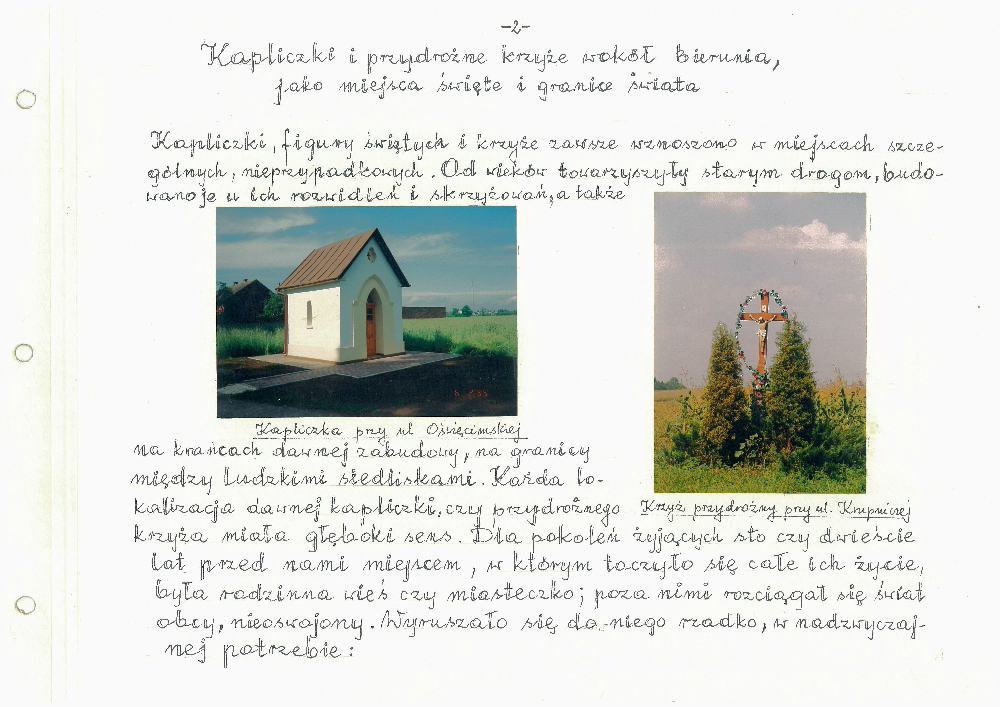 -2-
Kapliczki i przydrożne krzyże wokół Bierunia,
jako miejsca święte i granice świata
Kapliczki, figury świętych i krzyże zawsze wznoszono w miejscach szcze-
gólnych, nieprzypadkowych. Od wieków towarzyszyły starym drogom, budo-
wano je u ich rozwidleń i skrzyżowań, a także
Kapliczka przy ul Oświęcimskiej
na krańcach dawnej zabudowy, na granicy
między ludzkimi siedliskami. Każda lo-
kalizacja dawnej kapliczki, czy przydrożnego
Krzyż przydrożny przy ul. Krupniczej
krzyża miała głęboki sens. Dla pokoleń żyjących sto czy dwieście
lat przed nami miejscem, w którym toczyło się całe ich życie,
była rodzinna wieś czy miasteczko; poza nimi rozciągał się świat
obcy, nieoswojony. Wyruszało się do niego rzadko, w nadzwyczaj-
nej potrzebie: